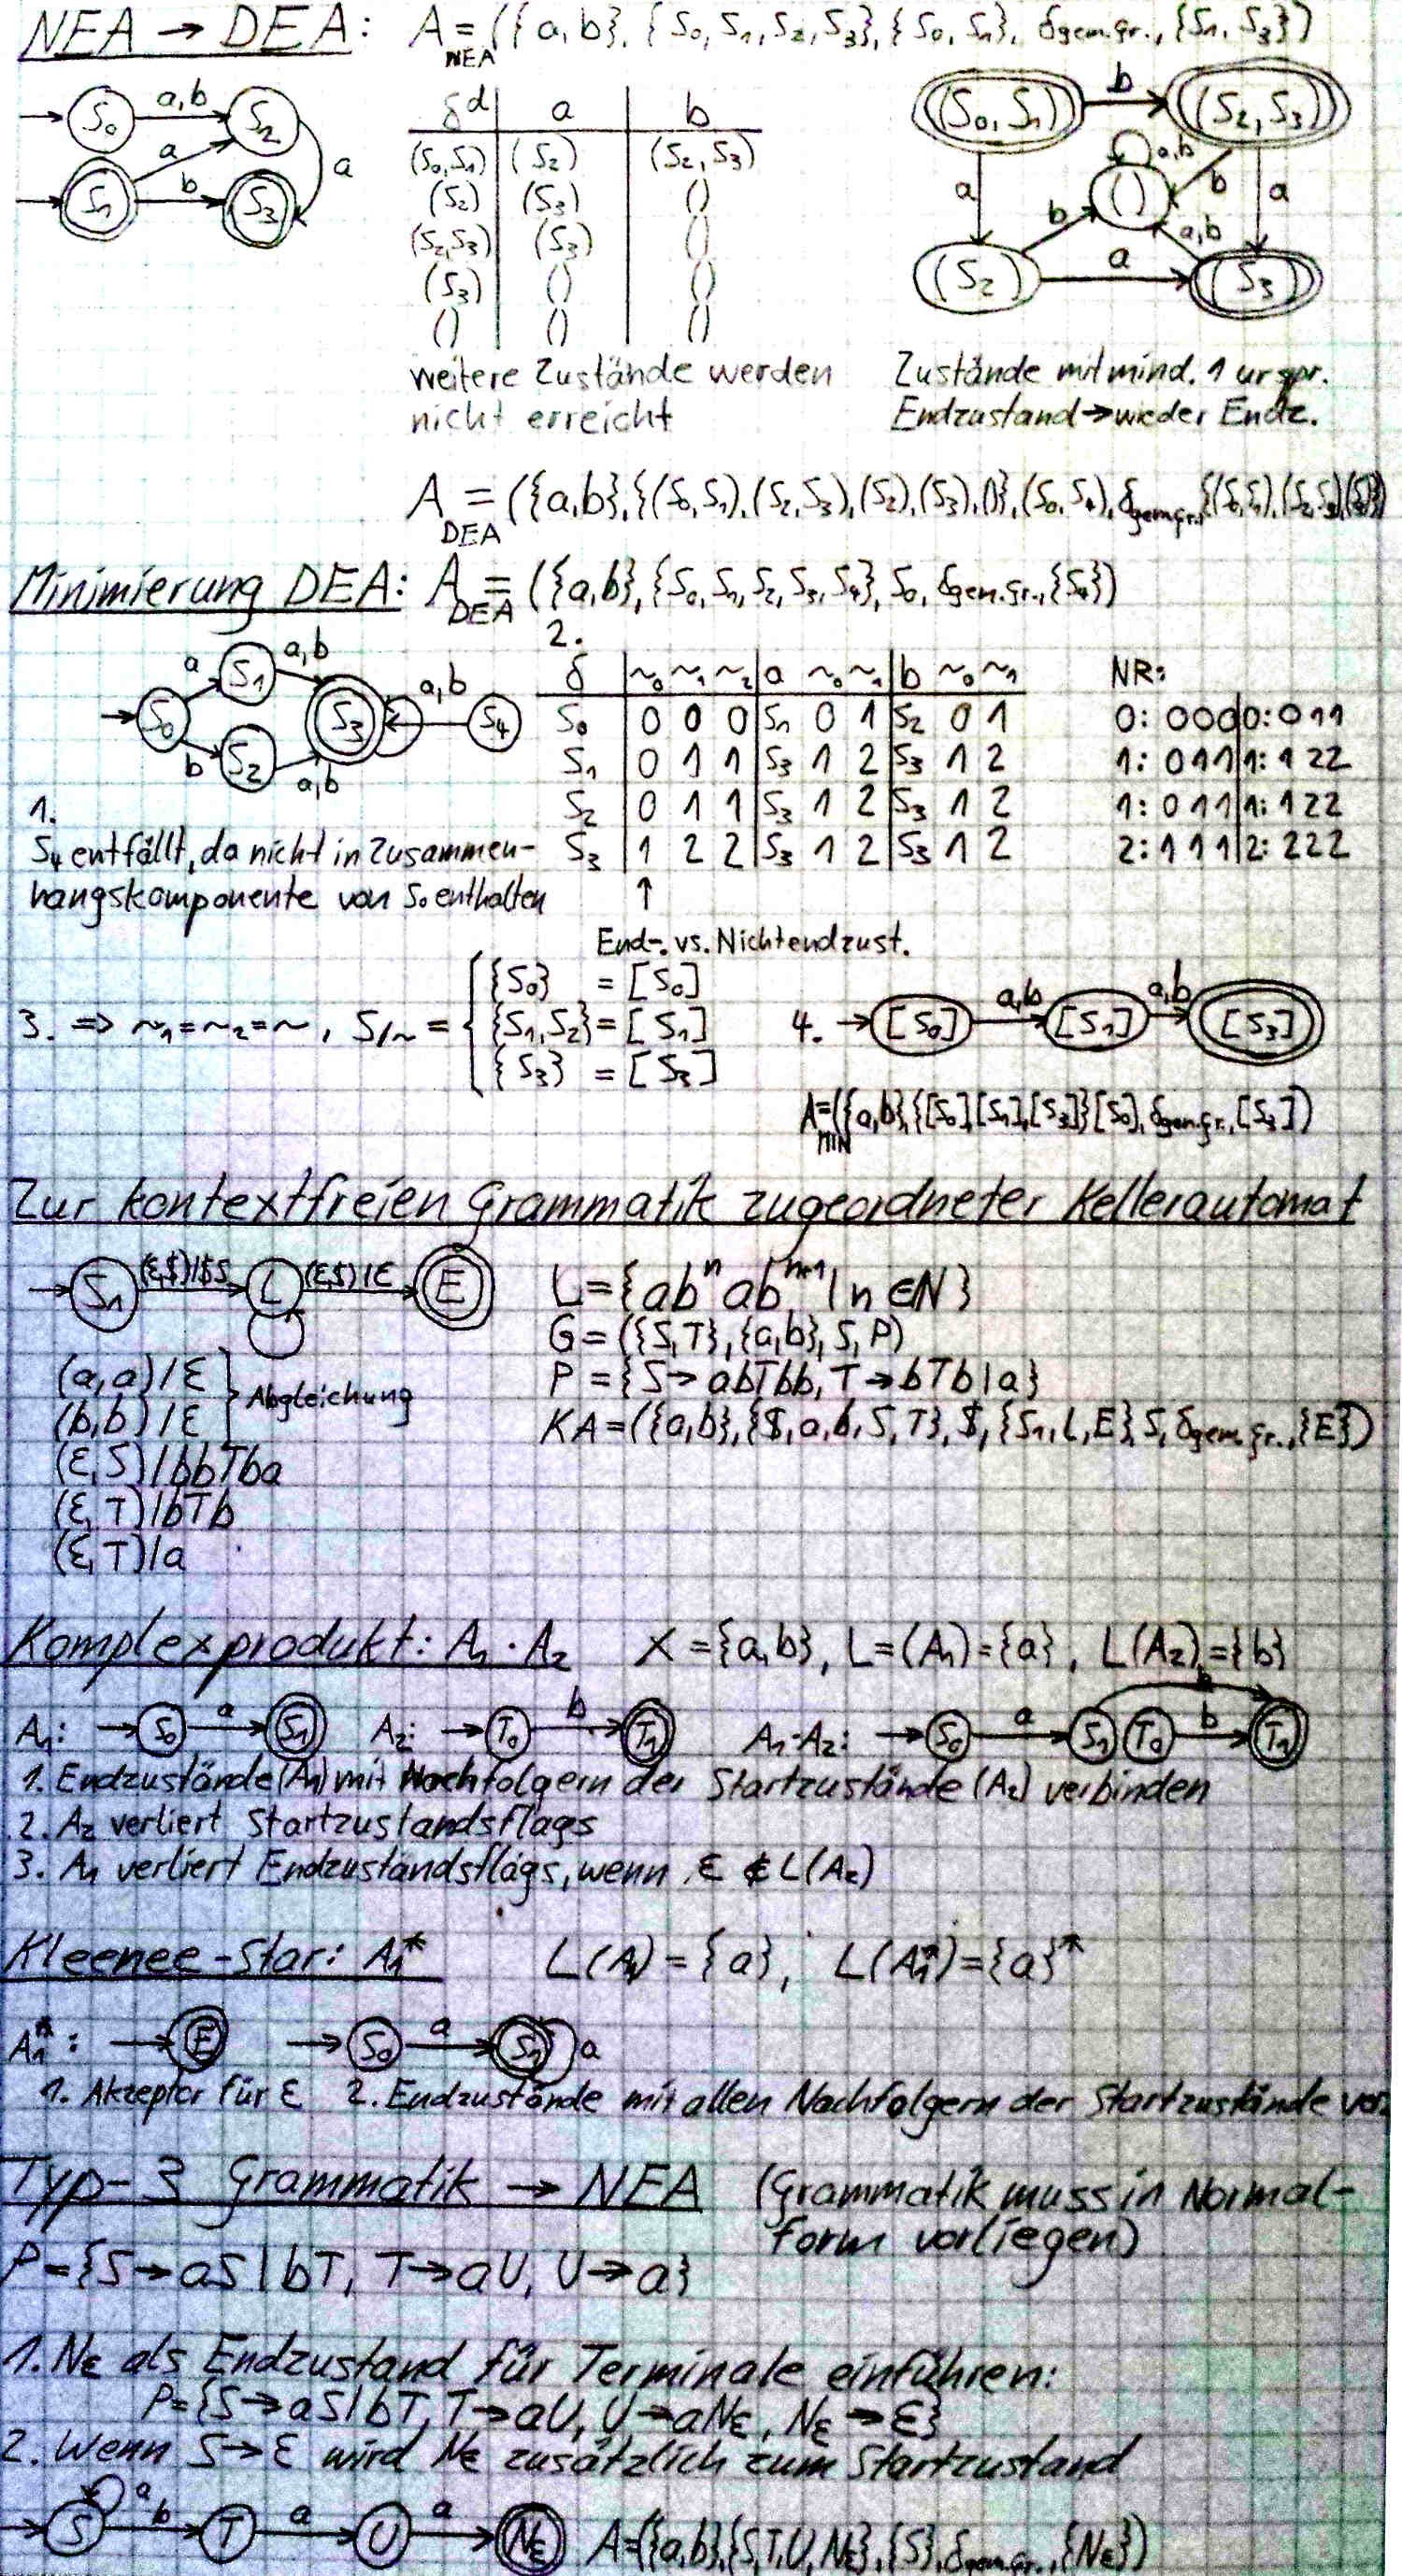 NEA → DEA: A NEA = ({a,b}, {S0, S1, S2, S3}, {S0, S1}, δ gem.Gr., {S1, S3})
S0 a,b S2 a
S1 a b S3
δ^d | a | b
(S0,S1) | (S2) | (S2,S3)
(S2) | (S3) | ()
(S2,S3) | (S3) | ()
(S3) | () | ()
() | () | ()
(S0,S1) b (S2,S3)
a () a,b b a
b a,b
(S2) a (S3)
weitere Zustände werden
nicht erreicht
Zustände mit mind. 1 urspr.
Endzustand → wieder Endz.
A DEA = ({a,b},{(S0,S1),(S2,S3),(S2),(S3),()},(S0,S1),δ gem.Gr.,{(S0,S1),(S2,S3),(S3)})
Minimierung DEA: A DEA = ({a,b},{S0,S1,S2,S3,S4},S0,δ gem.Gr.,{S4})
a S1 a,b
S0 S3 a,b S4
b S2 a,b
2.
δ | ~0 ~1 ~2 | a ~0 ~1 | b ~0 ~1
S0 | 0 0 0 | S1 0 1 | S2 0 1
S1 | 0 1 1 | S3 1 2 | S3 1 2
S2 | 0 1 1 | S3 1 2 | S3 1 2
S3 | 1 2 2 | S3 1 2 | S3 1 2
↑
End-. vs. Nichtendzust.
NR:
0: 000|0: 011
1: 011|1: 122
1: 011|1: 122
2: 111|2: 222
1.
S4 entfällt, da nicht in Zusammen-
hangskomponente von S0 enthalten
3. ⇒ ~1=~2=~, S/~ = { {S0} = [S0]
{S1,S2} = [S1]
{S3} = [S3]
4. → [S0] a,b [S1] a,b [S3]
A MIN = ({a,b},{[S0][S1],[S3]}[S0],δ gem.Gr.,[S3])
Zur kontextfreien Grammatik zugeordneter Kellerautomat
S1 (ε,$)/$S L (ε,$)/ε E
(a,a)/ε
(b,b)/ε } Abgleichung
(ε,S)/bbTba
(ε,T)/bTb
(ε,T)/a
L={ab^n ab^n+1 | n ∈ N}
G=({S,T},{a,b},S,P)
P={S→abTbb, T→bTb|a}
KA=({a,b},{$,a,b,S,T},$,{S1,L,E},S,δ gem.Gr.,{E})
Komplexprodukt: A1·A2 X={a,b}, L=(A1)={a}, L(A2)={b}
A1: → S0 a S1 A2: → T0 b T1 A1·A2: → S0 a S1 T0 b T1 b
1. Endzustände(A1) mit Nachfolgern der Startzustände (A2) verbinden
2. A2 verliert Startzustandsflags
3. A1 verliert Endzustandsflags, wenn ε ∉ L(A2)
Kleenee-Star: A1* L(A1)={a}, L(A1*)={a}*
A1*: → E → S0 a S1 a
1. Akzeptor für ε 2. Endzustände mit allen Nachfolgern der Startzustände ver.
Typ-3 Grammatik → NEA (Grammatik muss in Normal-
form vorliegen)
P={S→aS|bT, T→aU, U→a}
1. Nε als Endzustand für Terminale einführen:
P={S→aS|bT, T→aU, U→aNε, Nε→ε}
2. Wenn S→ε wird Nε zusätzlich zum Startzustand
→ S a b T a U a Nε A=({a,b},{S,T,U,Nε},{S},δ gem.Gr.,{Nε})